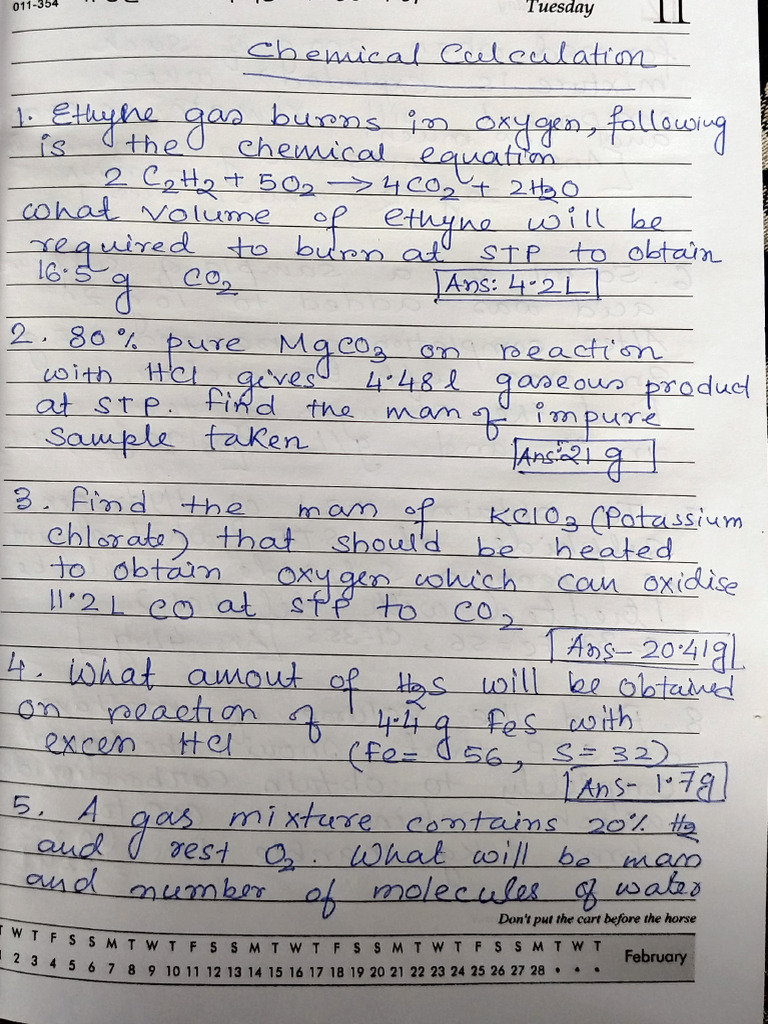 011-354
Tuesday
11
Chemical Calculation
1. Ethyne gas burns in oxygen, following
is the chemical equation
2 C2H2 + 5O2 → 4CO2 + 2H2O
what volume of ethyne will be
required to burn at STP to obtain
16.5 g CO2
Ans: 4.2 L
2. 80% pure MgCO3 on reaction
with HCl gives 4.48 l gaseous product
at STP. find the mass of impure
sample taken
Ans: 21 g
3. Find the mass of KClO3 (Potassium
Chlorate) that should be heated
to obtain oxygen which can oxidise
11.2 L CO at STP to CO2
Ans- 20.41g
4. What amout of H2S will be obtained
on reaction of 4.4 g FeS with
excess HCl (Fe= 56, S= 32)
Ans- 1.7g
5. A gas mixture contains 20% H2
and rest O2. What will be mass
and number of molecules of water
Don't put the cart before the horse
T W T F S S M T W T F S S M T W T F S S M T W T F S S M T W T
2 3 4 5 6 7 8 9 10 11 12 13 14 15 16 17 18 19 20 21 22 23 24 25 26 27 28 • • •
February